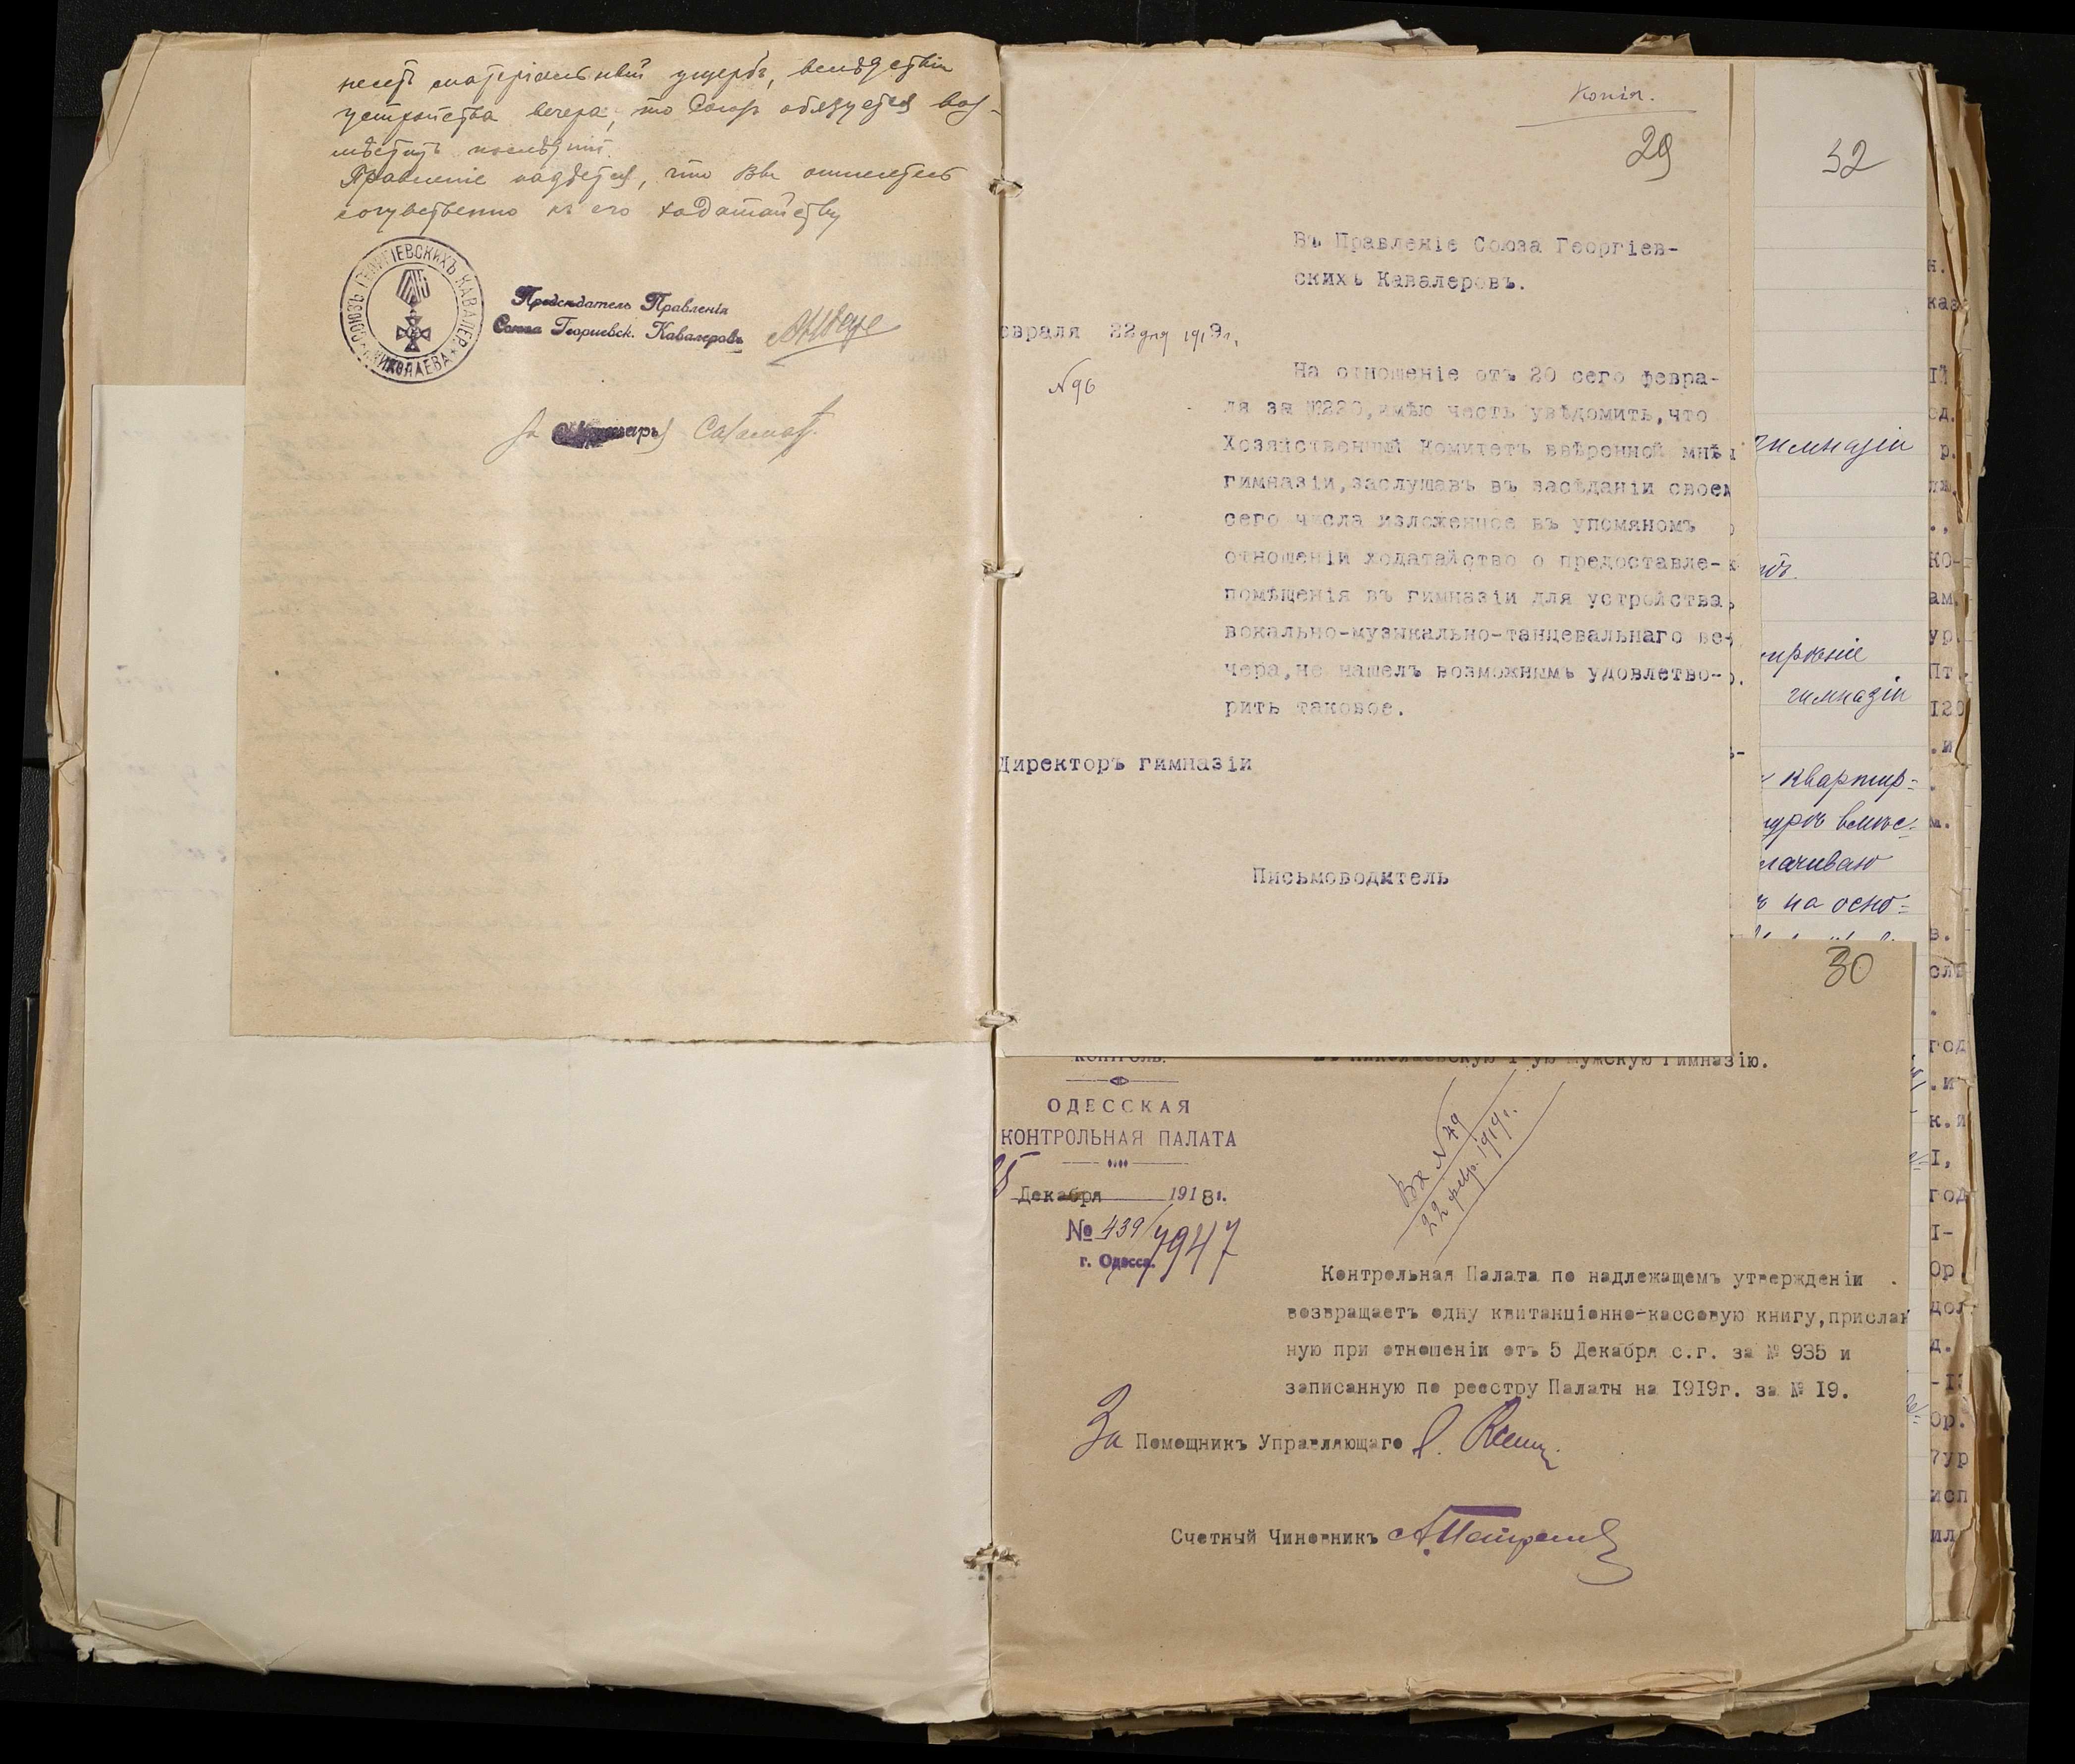 несетъ матеріальный ущербъ, вслѣдствіи
устройства вечера, то Союзъ обязуется воз-
мѣстить послѣдній.
Правленіе надѣется, что Вы отнесетесь
сочувственно къ его ходатайству
СОЮЗЪ ГЕОРГІЕВСКИХЪ КАВАЛЕР.
НИКОЛАЕВА
Предсѣдатель Правленія
Союза Георгіевск. Кавалеровъ
За
Копія.
29
Въ Правленіе Союза Георгіев-
скихъ Кавалеровъ.
евраля 22 дня 1919 г.
№ 96
На отношеніе отъ 20 сего февра-
ля за №220, имѣю честь увѣдомить, что
Хозяйственный Комитетъ ввѣренной мнѣ
гимназіи, заслушавъ въ засѣданіи своем
сего числа изложенное въ упомяномъ
отношеніи ходатайство о предоставле-
помѣщенія въ гимназіи для устройства
вокально-музыкально-танцевальнаго ве-
чера, не нашелъ возможнымъ удовлетво-
рить таковое.
Директоръ гимназіи
Письмоводитель
32
гимназіи
гимназіи
квартир=
на осно=
30
КОНТРОЛЬ.
Въ Николаевскую 1-ую мужскую гимназію.
ОДЕССКАЯ
КОНТРОЛЬНАЯ ПАЛАТА
Декабря 1918 г.
№ 439/7947
г. Одесса.
Вх № 79
22 февр. 1919 г.
Контрольная Палата по надлежащемъ утвержденіи
возвращаетъ одну квитанціонно-кассовую книгу, прислан
ную при отношеніи отъ 5 Декабря с.г. за № 935 и
записанную по реестру Палаты на 1919г. за № 19.
За Помощникъ Управляющаго
Счетный Чиновникъ